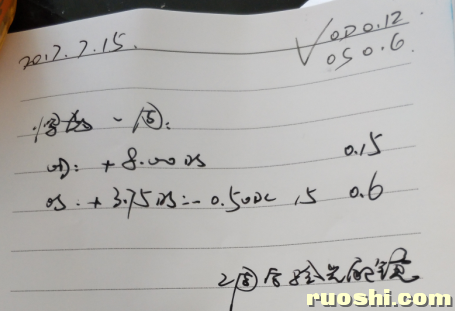 2017.7.15.
V OD 0.12
OS 0.6.
一周:
OD: +8.00DS 0.15
OS: +3.75DS:-0.50DC 15 0.6
2周后验光配镜
ruoshi.com